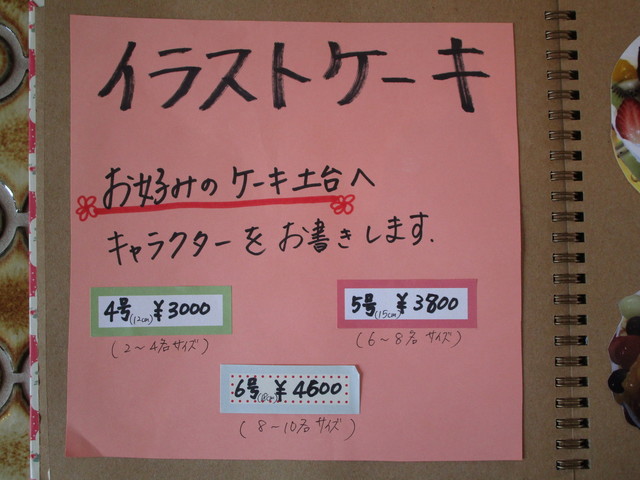 イラストケーキ
お好みのケーキ土台へ
キャラクターをお書きします.
4号(12cm) ¥3000
(2〜4名サイズ)
5号(15cm) ¥3800
(6〜8名サイズ)
6号 ¥4600
(8〜10名サイズ)